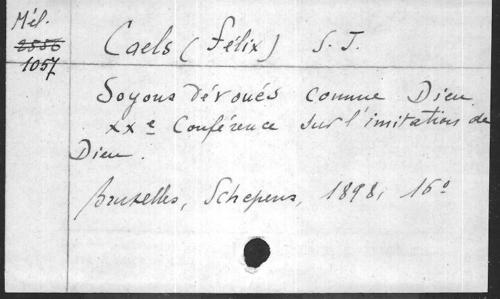 Mél.
2556
1057
Caels (Félix) S. J.
Soyons dévoués comme Dieu.
XXe Conférence sur l'imitation de
Dieu.
Bruxelles, Schepens, 1898, 16º